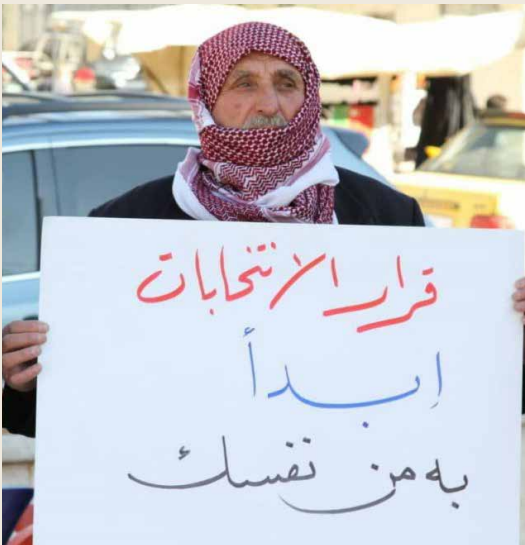 قرار الانتخابات
إبدأ
به من نفسك